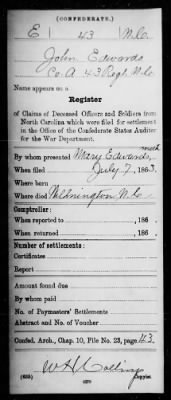 (CONFEDERATE.)
E 43 N.C.
John Edwards
Co. A 43 Regt. N.C.
Name appears as a
Register
of Claims of Deceased Officers and Soldiers from
North Carolina which were filed for settlement
in the Office of the Confederate States Auditor
for the War Department.
By whom presented Mary Edwards,
When filed July 7, 1863
Where born
Where died Wilmington N.C.
Comptroller:
When reported to , 186 .
When returned , 186 .
Number of settlements:
Certificates
Report
Amount found due
By whom paid
No. of Paymasters' Settlements
Abstract and No. of Voucher
Confed. Arch., Chap. 10, File No. 23, page 43.
W H Collins
Copyist.